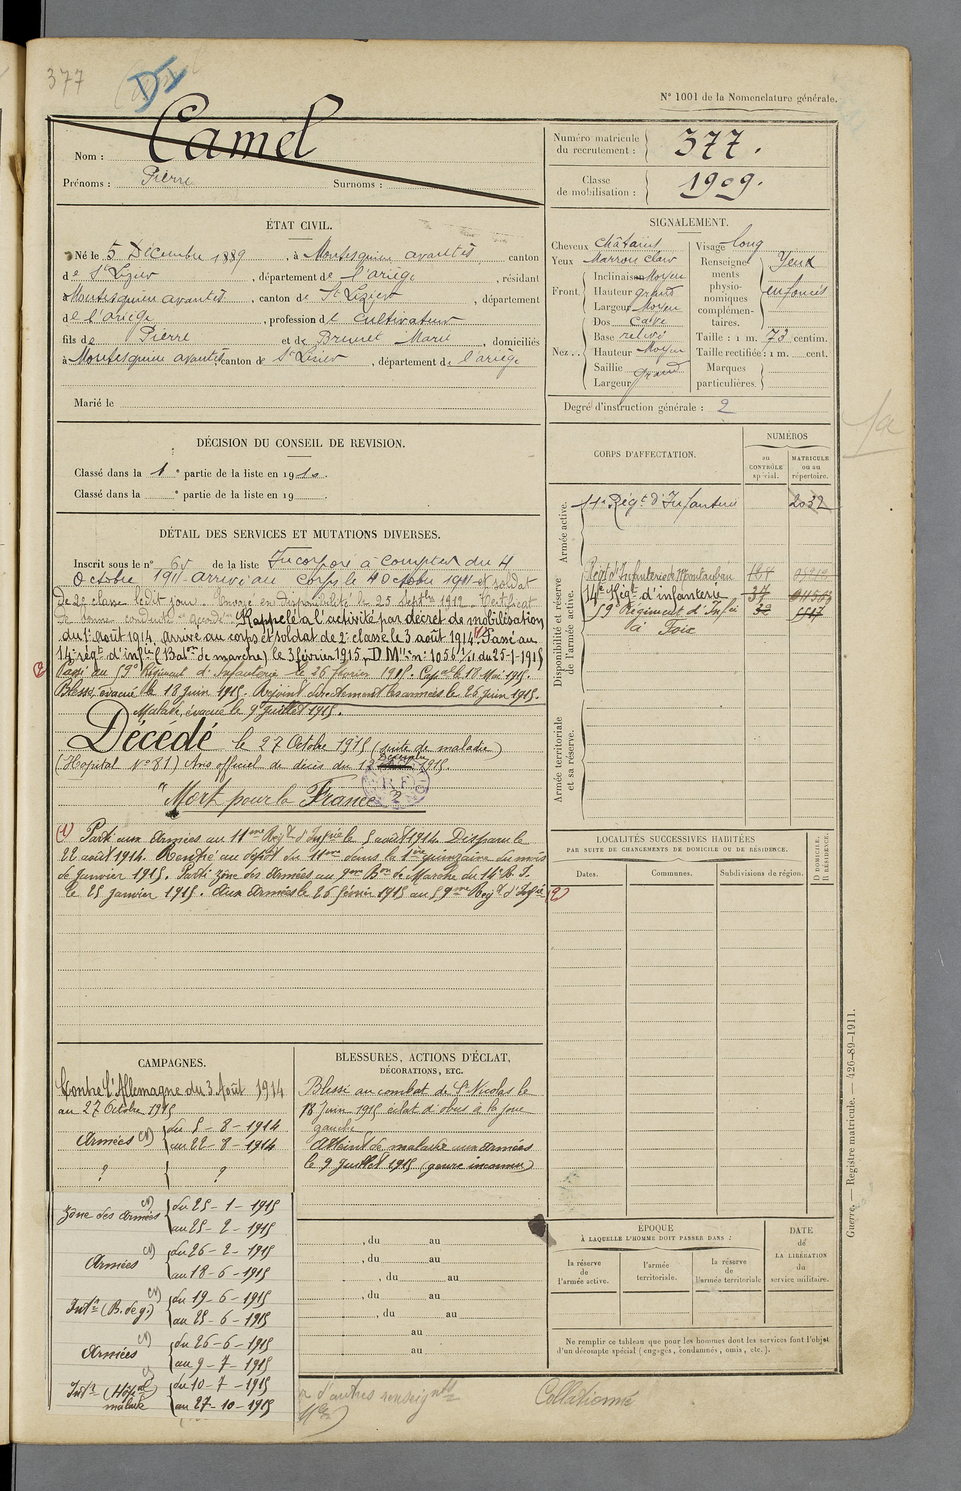 377
DI
N° 1001 de la Nomenclature générale.
Nom : Camel
Prénoms : Pierre Surnoms :
Numéro matricule du recrutement : 377.
Classe de mobilisation : 1909.
ÉTAT CIVIL.
Né le 5 Décembre 1889, à Montesquieu avantès canton
de St Lizier, département de l'ariège, résidant
Montesquieu avantès, canton de St Lizier, département
de l'ariège, profession de cultivateur
fils de Pierre et de Brunet Marie, domiciliés
à Montesquieu avantès canton de St Lizier, département de l'ariège
Marié le
SIGNALEMENT.
Cheveux châtains
Yeux Marron clair
Front. Inclinaison Moyen
Hauteur grand
Largeur Moyen
Nez. Dos cave
Base relevé
Hauteur Moyen
Saillie
Largeur grand
Visage long
Renseignements physionomiques complémentaires. Yeux enfoncés
Taille : 1 m. 73 centim.
Taille rectifiée : 1 m. cent.
Marques particulières.
Degré d'instruction générale : 2
DÉCISION DU CONSEIL DE REVISION.
Classé dans la 1e partie de la liste en 1910.
Classé dans la e partie de la liste en 19 .
DÉTAIL DES SERVICES ET MUTATIONS DIVERSES.
Inscrit sous le n° 65 de la liste Incorporé à compter du 4
Octobre 1911 arrivé au corps le 4 Octobre 1911 et soldat
de 2e classe ledit jour. Envoyé en disponibilité le 25 Septbre 1912. Certificat
de bonne conduite accordé. Rappelé à l'activité par décret de mobilisation
du 1er août 1914, arrivé au corps et soldat de 2e classe le 3 août 1914. (1) Passé au
14e régt d'infie (Baton de marche) le 3 février 1915, D.Mlle n° 1056 1/11 du 25-1-1915
(2) Passé au 59e Régiment d'Infanterie le 26 février 1915. Cap al le 18 Mai 1915.
Blessé, évacué le 18 Juin 1915. Rejoint directement les armées le 26 Juin 1915.
Malade, évacué le 9 Juillet 1915.
Décédé le 27 Octobre 1915 (suite de maladie)
(Hopital N° 81) Avis officiel de décès du 12 Décembre 1915.
"Mort pour la France"
(1) Parti aux Armées au 11eme Régt d'Infrie le 5 août 1914. Disparu le
22 août 1914. Rentré au dépôt du 11eme dans la 1ère quinzaine du mois
de janvier 1915. Parti zône des Armées au 9eme Bon de Marche du 14e R.I.
le 25 janvier 1915. Aux Armées le 26 février 1915 au 59eme Régt d'Infie (2)
CORPS D'AFFECTATION.
NUMÉROS
au CONTRÔLE spécial.
MATRICULE ou au répertoire.
Armée active.
11e Régt d'Infanterie 2032
Disponibilité et réserve de l'armée active.
Régt d'Infanterie de Montauban
14e Régt d'infanterie 37
59e Régiment d'Infie
à Foix
Armée territoriale et sa réserve.
LOCALITÉS SUCCESSIVES HABITÉES
PAR SUITE DE CHANGEMENTS DE DOMICILE OU DE RÉSIDENCE.
Dates.
Communes.
Subdivisions de région.
D DOMICILE.
R RÉSIDENCE.
CAMPAGNES.
Contre l'Allemagne du 3 Août 1914
au 27 Octobre 1915
Armées du 5-8-1914
au 22-8-1914
? ?
Zône des Armées du 25-1-1915
au 25-2-1915
Armées du 26-2-1915
au 18-6-1915
Intr (B. de g.) du 19-6-1915
au 25-6-1915
Armées du 26-6-1915
au 9-7-1915
Intr (Hôpal malade) du 10-7-1915
au 27-10-1915
BLESSURES, ACTIONS D'ÉCLAT,
DÉCORATIONS, ETC.
Blessé au combat de St Nicolas le
18 Juin 1915 éclat d'obus à la joue
gauche
Atteint de maladie aux armées
le 9 Juillet 1915 (genre inconnu)
, du au
, du au
, du au
, du au
, du au
au
au
ÉPOQUE
À LAQUELLE L'HOMME DOIT PASSER DANS :
la réserve de l'armée active.
l'armée territoriale.
la réserve de l'armée territoriale
DATE de LA LIBÉRATION du service militaire.
Ne remplir ce tableau que pour les hommes dont les services font l'objet
d'un décompte spécial (engagés, condamnés, omis, etc.).
d'autres renseignts
Collationné
Guerre. — Registre matricule. — 426-89-1911.